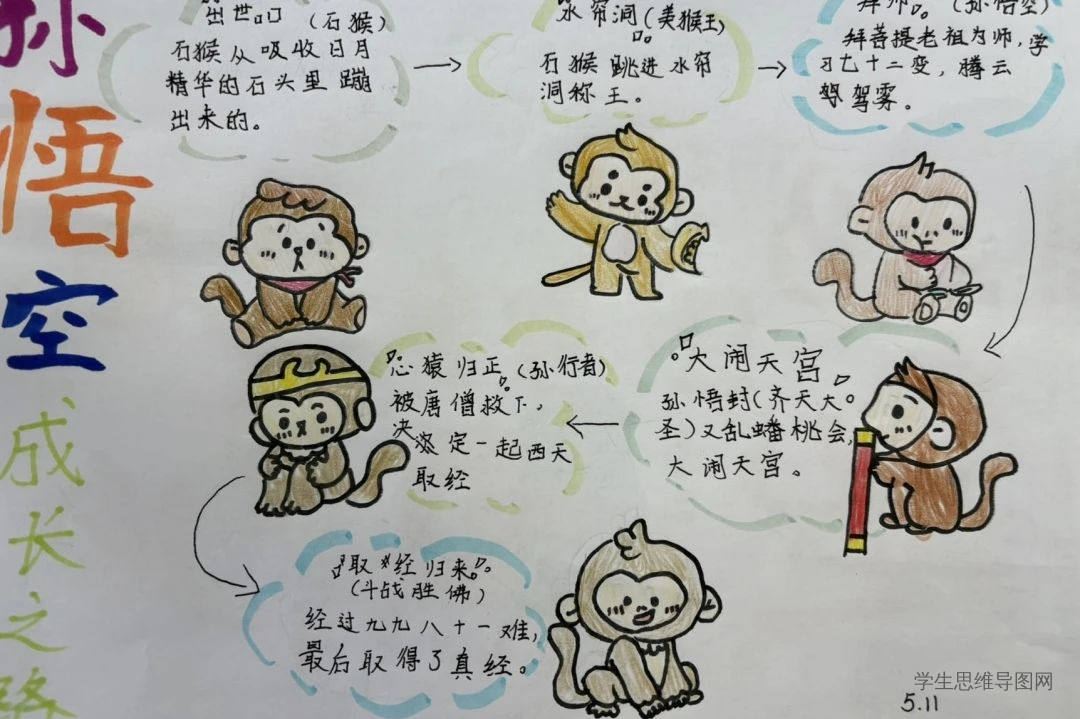 孙
悟
空
成
长
之
路
出世 (石猴)
石猴从吸收日月
精华的石头里蹦
出来的。
水帘洞(美猴王)
石猴跳进水帘
洞称王。
拜师。(孙悟空)
拜菩提老祖为师,学
习七十二变,腾云
驾雾。
大闹天宫
孙悟封(齐天大
圣)又乱蟠桃会,
大闹天宫。
心猿归正(孙行者)
被唐僧救下,
决定一起西天
取经
取经归来。
(斗战胜佛)
经过九九八十一难,
最后取得了真经。
5.11
学生思维导图网